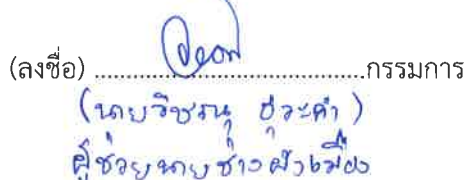 (ลงชื่อ) ........................................กรรมการ
(นายวิษณุ ธุระคำ)
ผู้ช่วยนายช่างผังเมือง